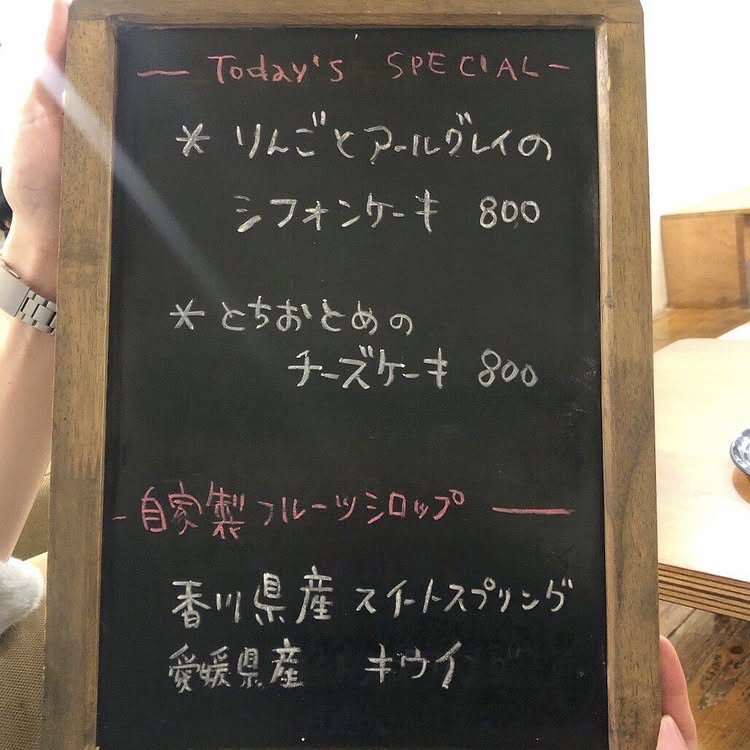 — Today's SPECIAL —
* りんごとアールグレイの
シフォンケーキ 800
* とちおとめの
チーズケーキ 800
- 自家製フルーツシロップ —
香川県産 スイートスプリング
愛媛県産 キウイ